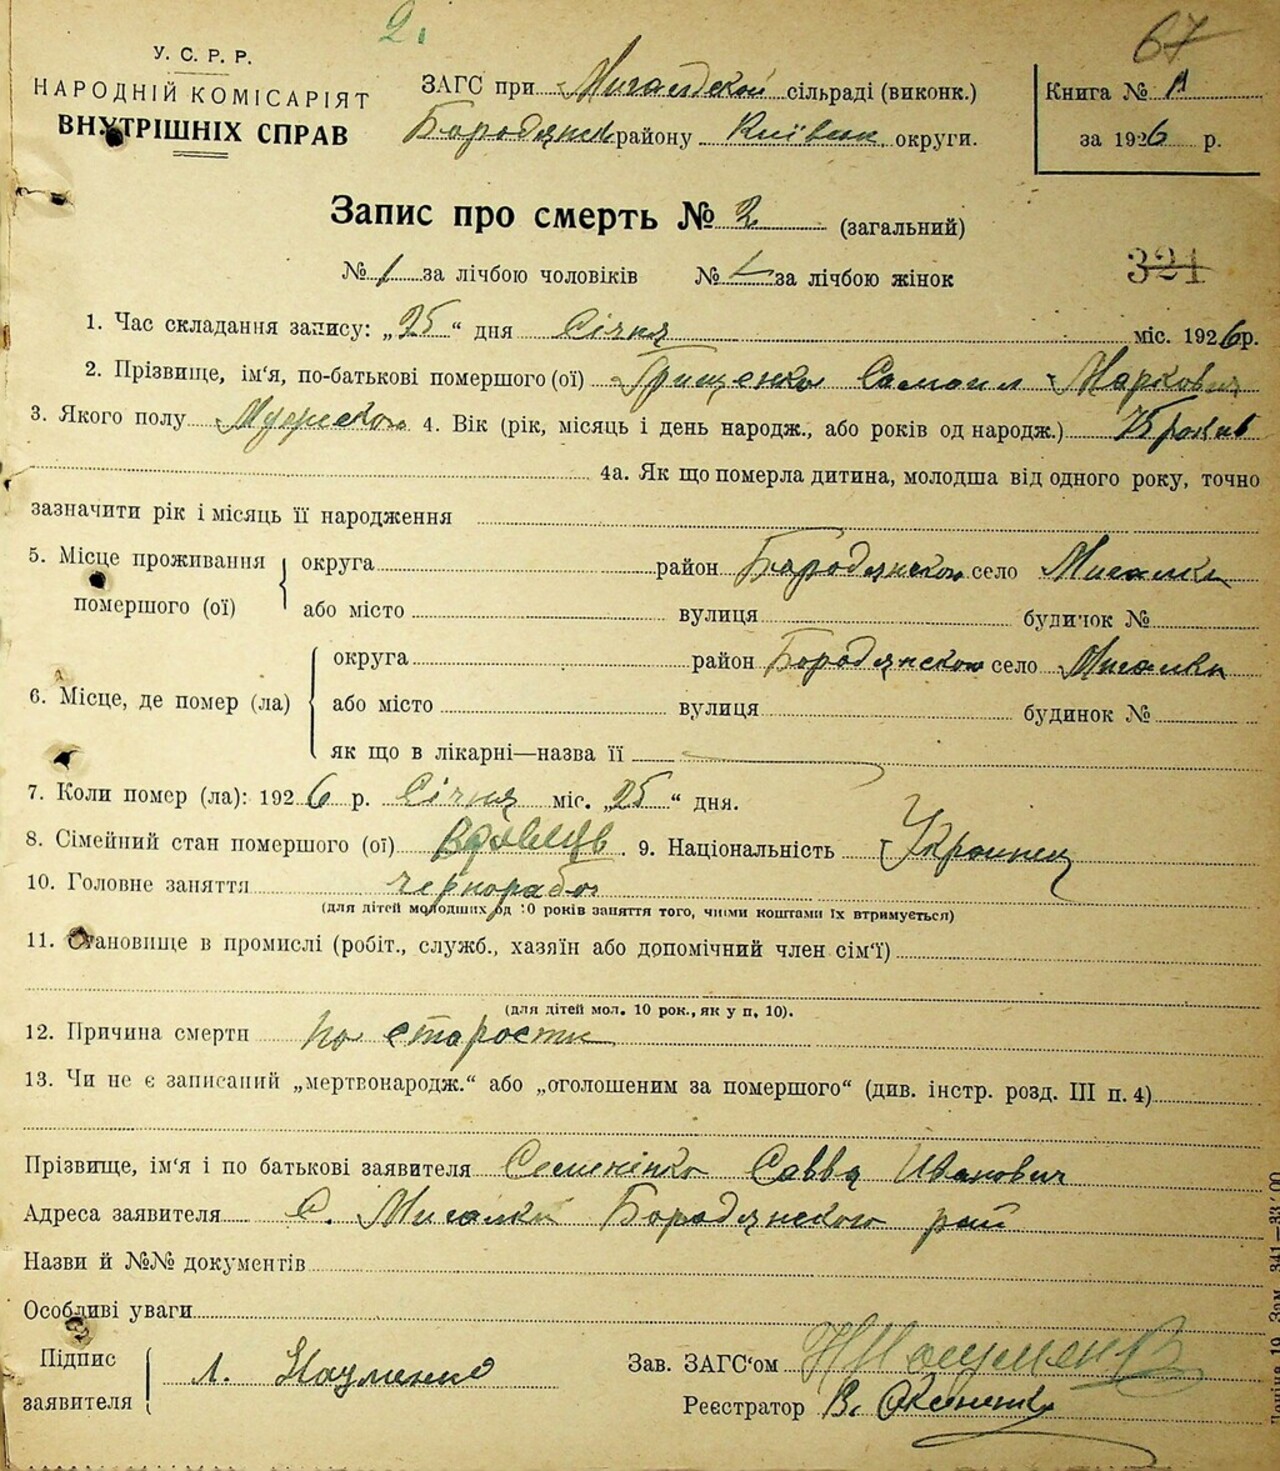 2.
67
У. С. Р. Р.
НАРОДНІЙ КОМІСАРІЯТ
ВНУТРІШНІХ СПРАВ
ЗАГС при Мигалской сільраді (виконк.)
Бородянск району Київск. округи.
Книга №
за 1926 р.
Запис про смерть № 2 (загальний)
№ 1 за лічбою чоловіків № за лічбою жінок
321
1. Час складання запису: „25“ дня Січня міс. 1926 р.
2. Прізвище, ім'я, по-батькові помершого (ої) Грищенко Самоил Маркович
3. Якого полу Мужского 4. Вік (рік, місяць і день народж., або років од народж.) 75 років
4а. Як що померла дитина, молодша від одного року, точно
зазначити рік і місяць її народження
5. Місце проживання помершого (ої) округа район Бородянского село Мигалки
або місто вулиця будинок №
6. Місце, де помер (ла) округа район Бородянского село Мигалки
або місто вулиця будинок №
як що в лікарні—назва її
7. Коли помер (ла): 1926 р. Січня міс. „25“ дня.
8. Сімейний стан помершого (ої) вдовець. 9. Національність Украинец
10. Головне заняття чернорабоч
(для дітей молодших од 10 років заняття того, чиїми коштами їх втримується)
11. Становище в промислі (робіт., служб., хазяїн або допомічний член сім'ї)
(для дітей мол. 10 рок., як у п. 10).
12. Причина смерти по старости
13. Чи не є записаний „мертвонародж.“ або „оголошеним за помершого“ (див. інстр. розд. III п. 4)
Прізвище, ім'я і по батькові заявителя Семенінко Савва Иванович
Адреса заявителя С. Мигалки Бородянского рай
Назви й №№ документів
Особливі уваги
Підпис заявителя Л. Науменко
Зав. ЗАГС'ом Науменко
Реєстратор В.